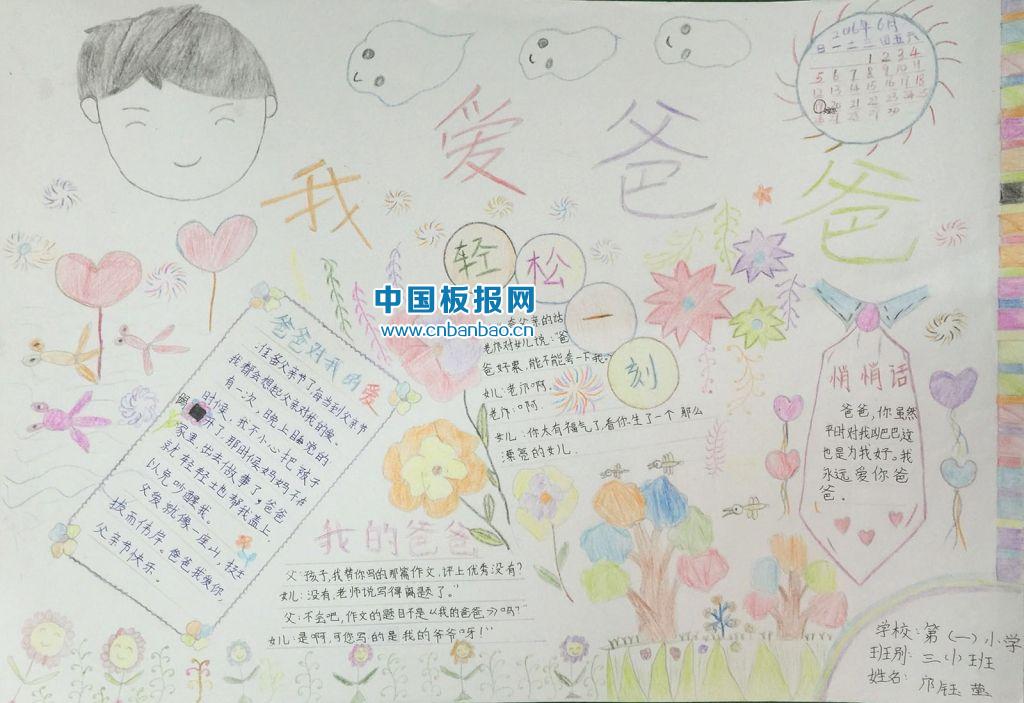 我爱爸爸
2016年6月
日一二三四五六
1 2 3 4
5 6 7 8 9 10 11
12 13 14 15 16 17 18
21 22 23 24 25
中国板报网
www.cnbanbao.cn
爸爸对我的爱
准备父亲节了每当到父亲节
我都会想起父亲对我的爱。
有一次,晚上睡觉的
时候,我不小心把被子
了,那时候妈妈不在
家里,出去做事了。爸爸
就轻轻地帮我盖上,
以免吵醒我。
父爱就像一座山,挺
拔而伟岸。爸爸我爱你,
父亲节快乐。
轻松一刻
父亲的站
老师对女儿说:"爸
爸好累,能不能
女儿:老师啊,
老师:啊,
女儿:你太有福气了,看你生了一个那么
漂亮的女儿.
我的爸爸
父:孩子,我替你写的那篇作文,评上优秀没有?
女儿:没有,老师说写得离题了。"
父:不会吧,作文的题目不是《我的爸爸》吗?"
女儿:是啊,可您写的是我的爷爷呀!"
悄悄话
爸爸,你虽然
平时对我凶巴巴,这
也是为我好。我
永远爱你爸
爸。
学校:第(一)小学
班别:三(1)班
姓名:邝钰莹